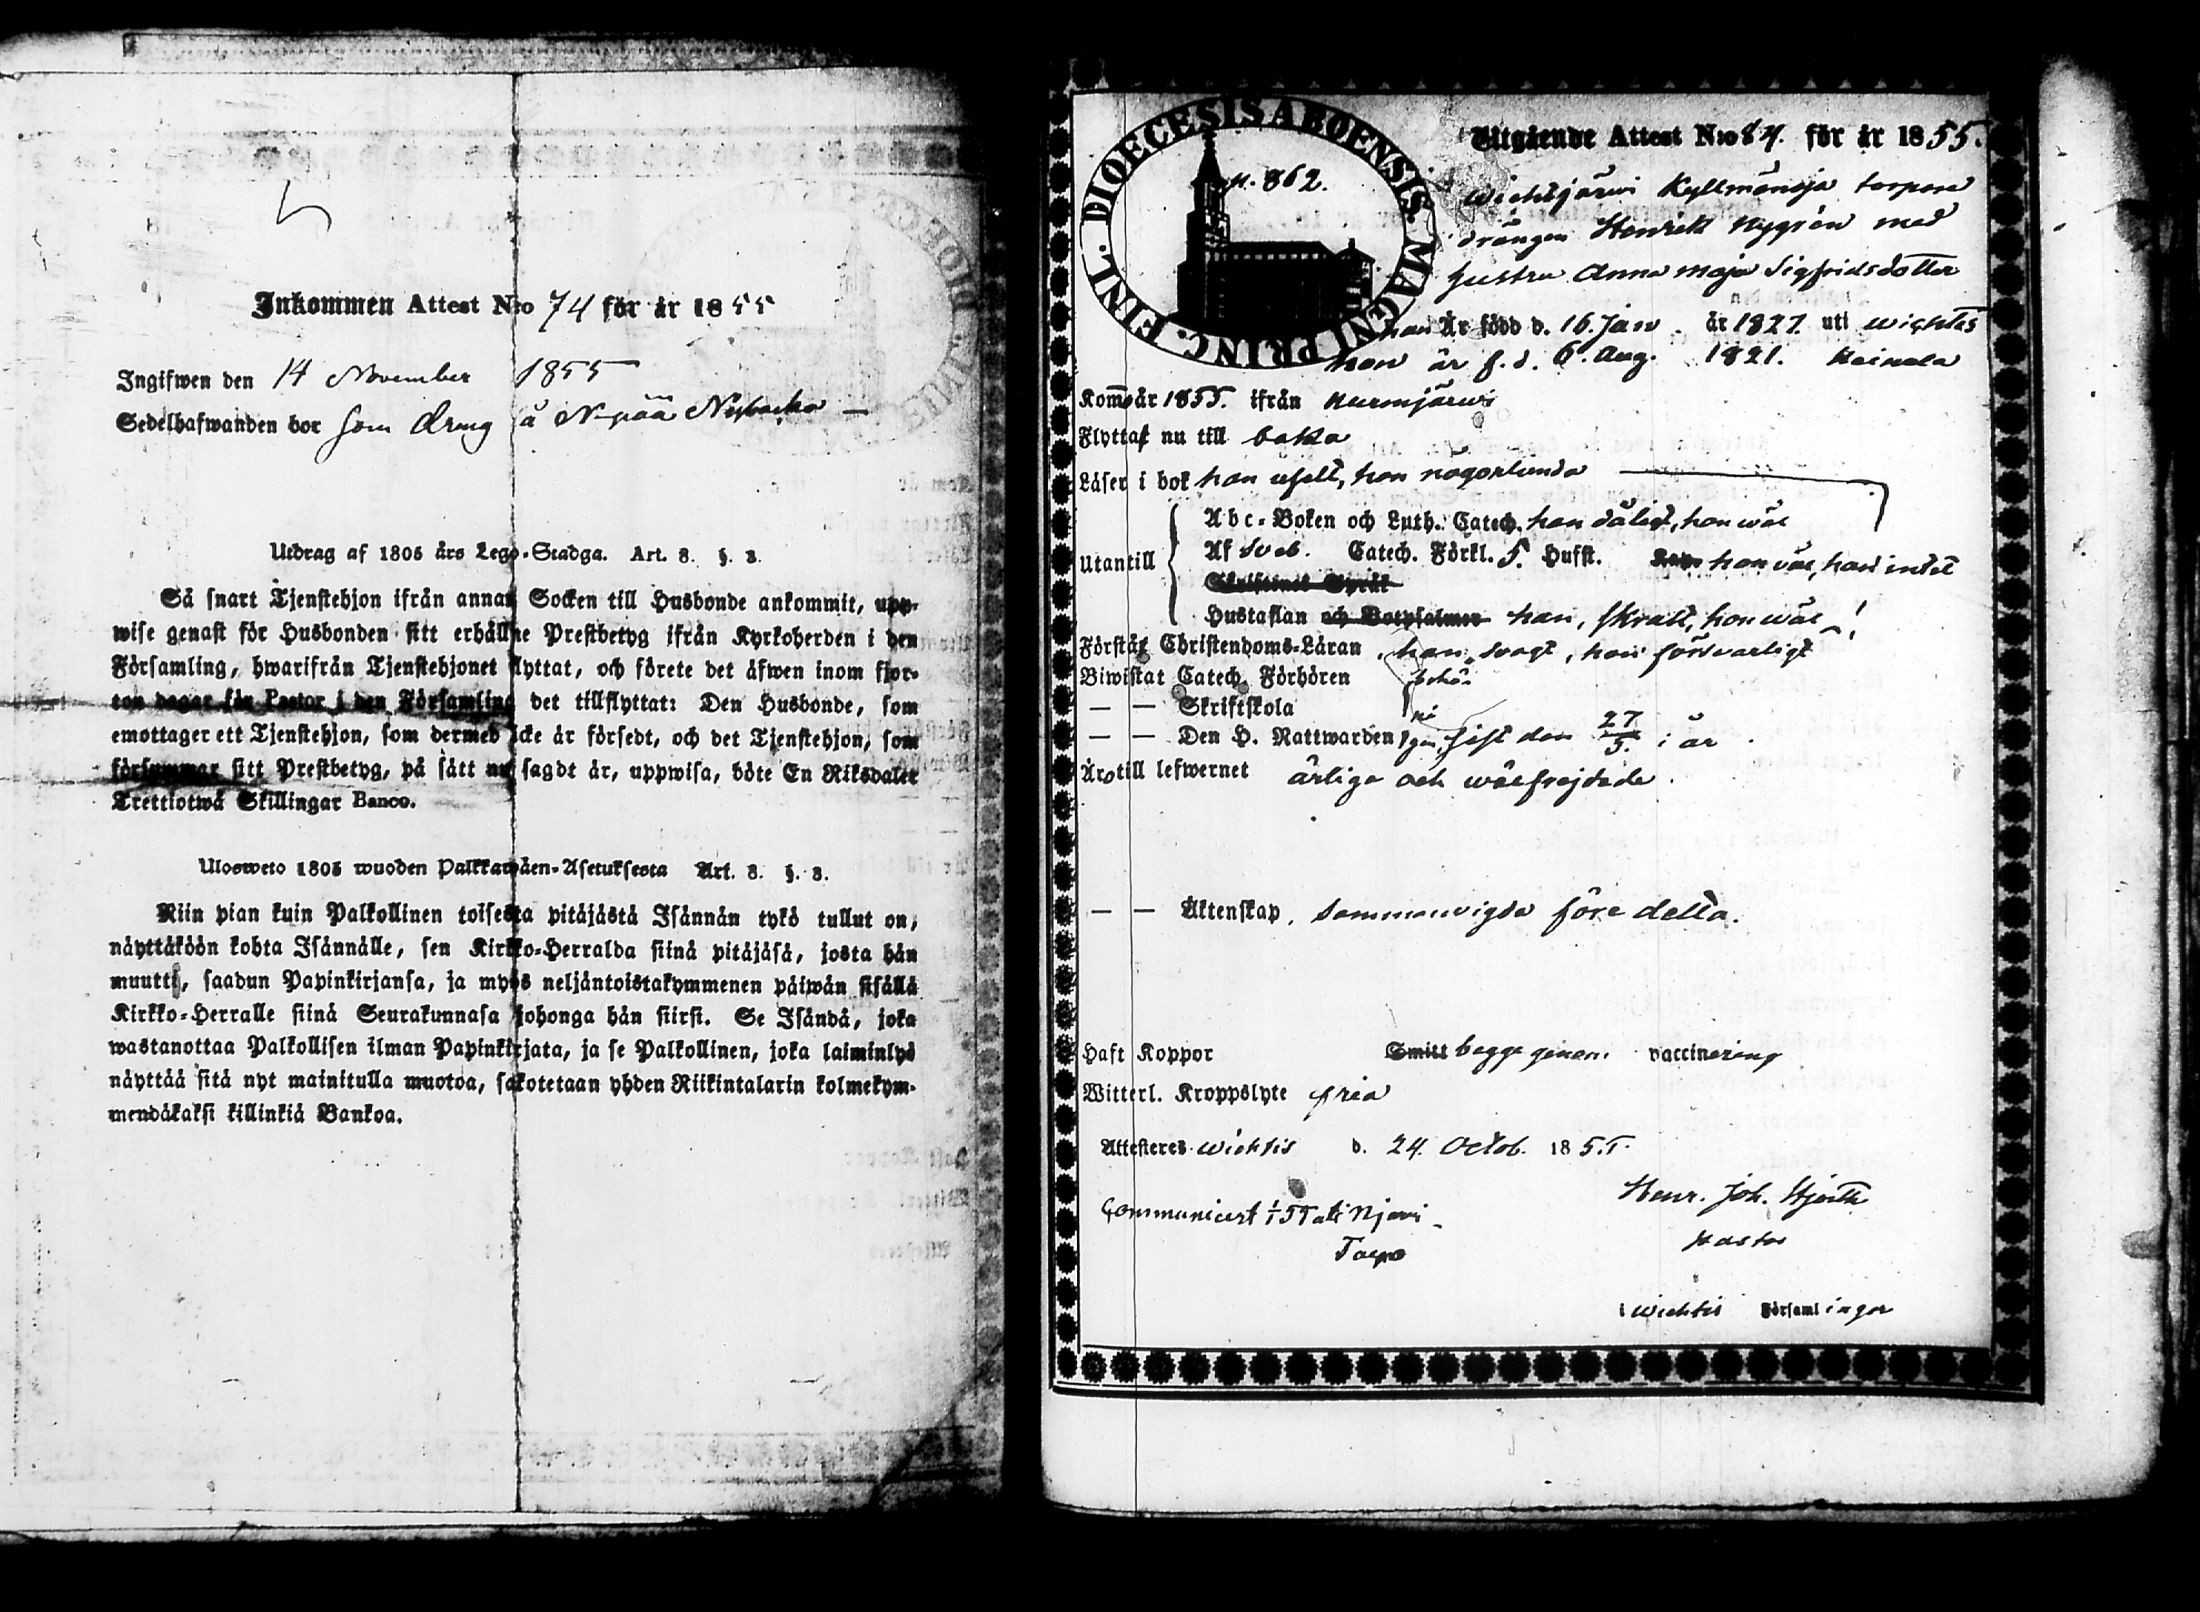 Inkommen Attest N:o 74 för år 1855
Ingifwen den 14 November 1855
Sedelhafwanden bor som Dreng å N-pää Nybacka —
Utdrag af 1805 års Lego-Stadga. Art. 8. §. 3.
Så snart Tjenstehjon ifrån annan Socken till Husbonde ankommit, upp-
wise genast för Husbonden sitt erhållne Prestbetyg ifrån Kyrkoherden i den
Församling, hwarifrån Tjenstehjonet flyttat, och förete det äfwen inom fjor-
ton dagar för Pastor i den Församling det tillflyttat: Den Husbonde, som
emottager ett Tjenstehjon, som dermed icke är försedt, och det Tjenstehjon, som
försummar sitt Prestbetyg, på sätt nu sagdt är, uppwisa, böte En Riksdaler
Trettiotwå Skillingar Banco.
Ulosweto 1805 wuoden Palkkawäen-Asetuksesta Art. 8. §. 3.
Niin pian kuin Palkollinen toisesta pitäjästä Isännän tykö tullut on,
näyttäköön kohta Isännälle, sen Kirkko-Herralda siinä pitäjäsä, josta hän
muutti, saadun Papinkirjansa, ja myös neljäntoistakymmenen päiwän sisällä
Kirkko-Herralle siinä Seurakunnasa johonga hän siirsi. Se Isändä, joka
wastanottaa Palkollisen ilman Papinkirjata, ja se Palkollinen, joka laiminlyö
näyttää sitä nyt mainitulla muotoa, sakotetaan yhden Riikintalarin kolmekym-
mendäkaksi killinkiä Bankoa.
FINL. DIOECESIS ABOENSIS. MAGNI PRINC.
N. 862.
Utgående Attest N:o 84. för år 1855.
Wichtijärwi Kyllmänoja torpare
drängen Henrik Nygrén med
hustru Anna Maja Sigfridsdotter
han Är född d. 16. Jan. år 1827. uti Wichtis
hon är f. d. 6. Aug. 1821. Heinola
Kom år 1855. ifrån Nurmijärwi
Flyttat nu till baka
Läser i bok han uselt, hon någorlunda
Utantill
Abc-Boken och Luth. Catech. han dåligt, hon wäl
Af Sveb. Catech. Förkl. 5. Hufst. hon väl, han intet
Skriftenes Språk
Hustaflan och Botpsalmer han, skralt, hon wäl
Förstår Christendoms-Läran han svagt, hon försvarligt
Biwistat Catech. Förhören
— — Skriftskola
— — Den H. Nattwarden sist den 27/5. i år
Är till lefwernet ärlige och wälfrejdade.
— — Äktenskap, sammanvigda före detta.
Haft Koppor Smitt begge genom vaccinering
Witterl. Kroppslyte fria
Attesteres Wichtis d. 24. Octob. 1855.
Henr. Joh. Hjerth
Pastor
i Wichtis Församlingar